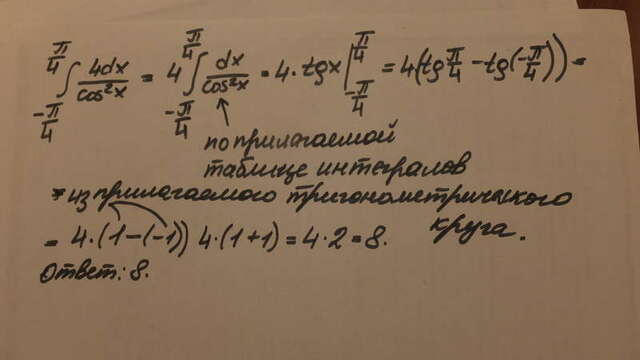 ∫_{-π/4}^{π/4} 4dx/cos²x = 4 ∫_{-π/4}^{π/4} dx/cos²x = 4·tgx |_{-π/4}^{π/4} = 4(tg π/4 - tg(-π/4)) =
по прилагаемой
таблице интегралов
* из прилагаемого тригонометрического
круга.
= 4·(1-(-1)) 4·(1+1) = 4·2 = 8.
Ответ: 8.